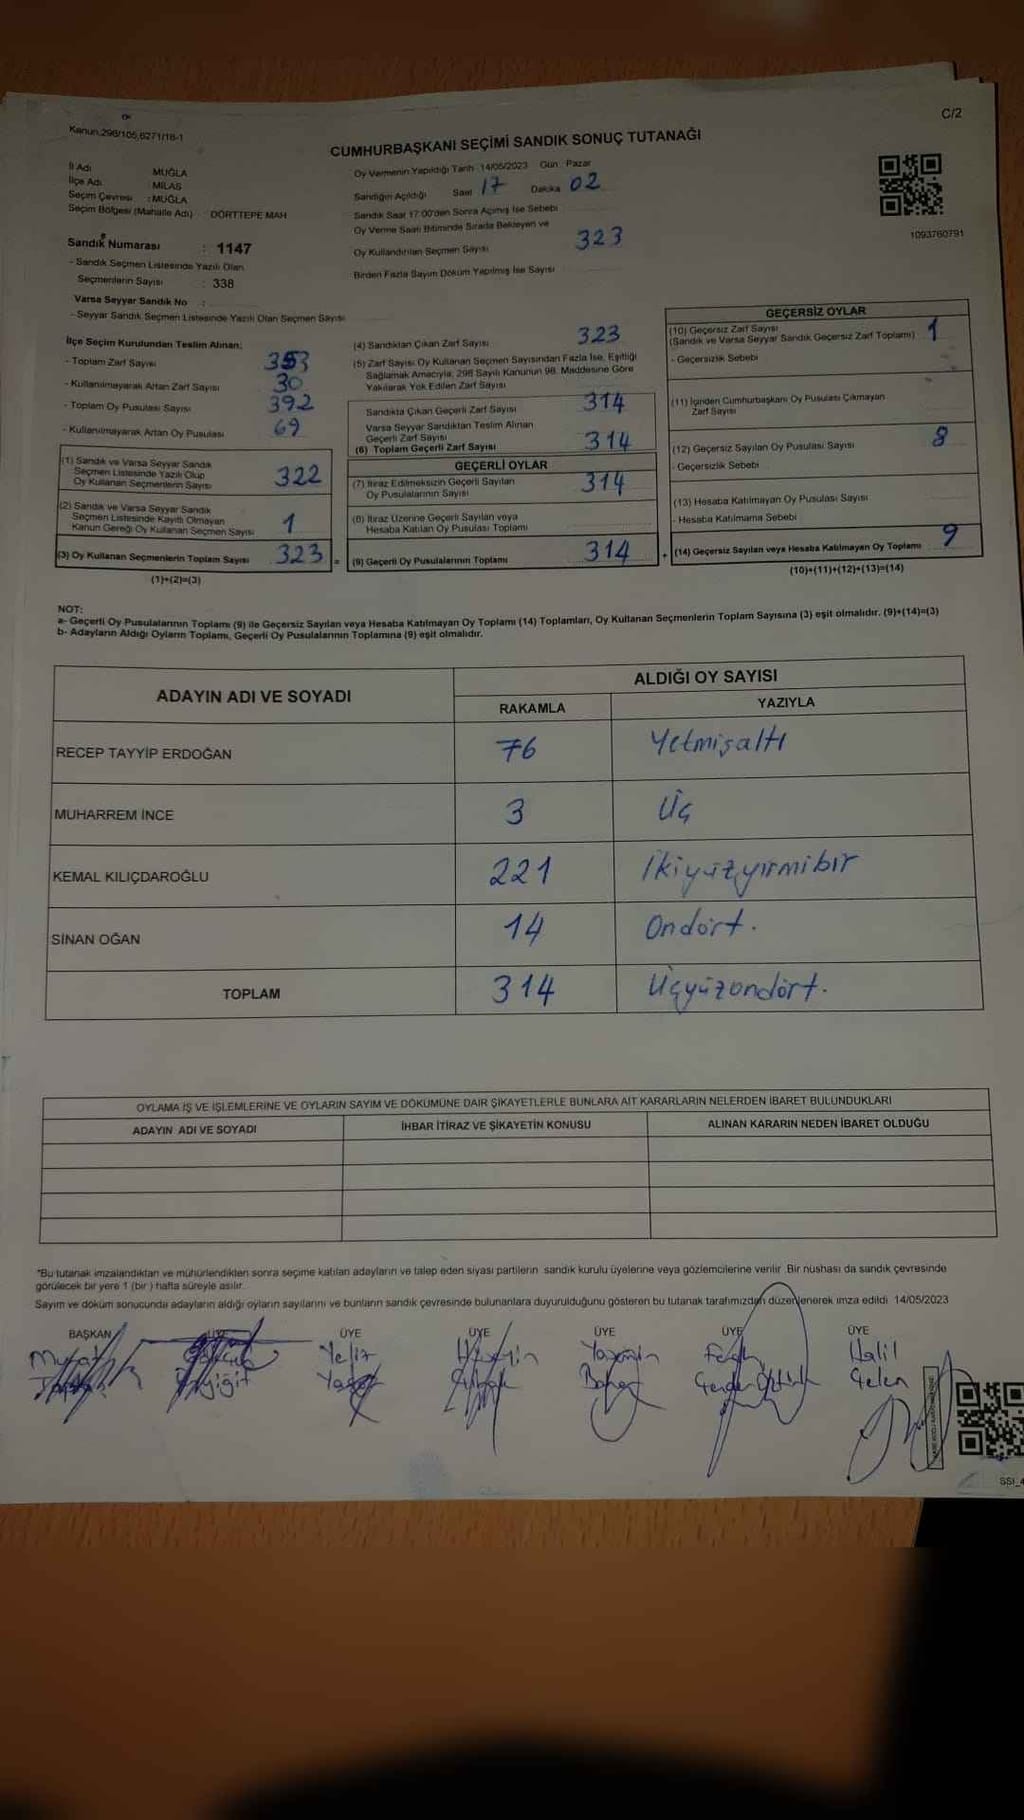 C/2
Kanun,298/105,6271/18-1
CUMHURBAŞKANI SEÇİMİ SANDIK SONUÇ TUTANAĞI
İl Adı MUĞLA
İlçe Adı MİLAS
Seçim Çevresi : MUĞLA
Seçim Bölgesi (Mahalle Adı) : DÖRTTEPE MAH
Sandık Numarası : 1147
- Sandık Seçmen Listesinde Yazılı Olan
Seçmenlerin Sayısı : 338
Varsa Seyyar Sandık No :
- Seyyar Sandık Seçmen Listesinde Yazılı Olan Seçmen Sayısı
Oy Vermenin Yapıldığı Tarih : 14/05/2023 Gün : Pazar
Sandığın Açıldığı Saat 17 Dakika 02
Sandık Saat 17:00'den Sonra Açılmış İse Sebebi
Oy Verme Saati Bitiminde Sırada Bekleyen ve
Oy Kullandırılan Seçmen Sayısı 323
Birden Fazla Sayım Döküm Yapılmış İse Sayısı
1093760791
İlçe Seçim Kurulundan Teslim Alınan;
- Toplam Zarf Sayısı 353
- Kullanılmayarak Artan Zarf Sayısı 30
- Toplam Oy Pusulası Sayısı 392
- Kullanılmayarak Artan Oy Pusulası 69
(1) Sandık ve Varsa Seyyar Sandık
Seçmen Listesinde Yazılı Olup
Oy Kullanan Seçmenlerin Sayısı 322
(2) Sandık ve Varsa Seyyar Sandık
Seçmen Listesinde Kayıtlı Olmayan
Kanun Gereği Oy Kullanan Seçmen Sayısı 1
(3) Oy Kullanan Seçmenlerin Toplam Sayısı 323 =
(1)+(2)=(3)
(4) Sandıktan Çıkan Zarf Sayısı 323
(5) Zarf Sayısı Oy Kullanan Seçmen Sayısından Fazla İse, Eşitliği
Sağlamak Amacıyla, 298 Sayılı Kanunun 98. Maddesine Göre
Yakılarak Yok Edilen Zarf Sayısı
Sandıkta Çıkan Geçerli Zarf Sayısı 314
Varsa Seyyar Sandıktan Teslim Alınan
Geçerli Zarf Sayısı
(6) Toplam Geçerli Zarf Sayısı 314
GEÇERLİ OYLAR
(7) İtiraz Edilmeksizin Geçerli Sayılan
Oy Pusulalarının Sayısı 314
(8) İtiraz Üzerine Geçerli Sayılan veya
Hesaba Katılan Oy Pusulası Toplamı
(9) Geçerli Oy Pusulalarının Toplamı 314 +
GEÇERSİZ OYLAR
(10) Geçersiz Zarf Sayısı
(Sandık ve Varsa Seyyar Sandık Geçersiz Zarf Toplamı) 1
- Geçersizlik Sebebi
(11) İçinden Cumhurbaşkanı Oy Pusulası Çıkmayan
Zarf Sayısı
(12) Geçersiz Sayılan Oy Pusulası Sayısı 8
- Geçersizlik Sebebi
(13) Hesaba Katılmayan Oy Pusulası Sayısı
- Hesaba Katılmama Sebebi
(14) Geçersiz Sayılan veya Hesaba Katılmayan Oy Toplamı 9
(10)+(11)+(12)+(13)=(14)
NOT:
a- Geçerli Oy Pusulalarının Toplamı (9) ile Geçersiz Sayılan veya Hesaba Katılmayan Oy Toplamı (14) Toplamları, Oy Kullanan Seçmenlerin Toplam Sayısına (3) eşit olmalıdır. (9)+(14)=(3)
b- Adayların Aldığı Oyların Toplamı, Geçerli Oy Pusulalarının Toplamına (9) eşit olmalıdır.
ADAYIN ADI VE SOYADI ALDIĞI OY SAYISI
RAKAMLA YAZIYLA
RECEP TAYYİP ERDOĞAN 76 Yetmişaltı
MUHARREM İNCE 3 Üç
KEMAL KILIÇDAROĞLU 221 İkiyüzyirmibir
SİNAN OĞAN 14 Ondört.
TOPLAM 314 Üçyüzondört.
OYLAMA İŞ VE İŞLEMLERİNE VE OYLARIN SAYIM VE DÖKÜMÜNE DAİR ŞİKAYETLERLE BUNLARA AİT KARARLARIN NELERDEN İBARET BULUNDUKLARI
ADAYIN ADI VE SOYADI İHBAR İTİRAZ VE ŞİKAYETİN KONUSU ALINAN KARARIN NEDEN İBARET OLDUĞU
*Bu tutanak imzalandıktan ve mühürlendikten sonra seçime katılan adayların ve talep eden siyasi partilerin sandık kurulu üyelerine veya gözlemcilerine verilir. Bir nüshası da sandık çevresinde
görülecek bir yere 1 (bir) hafta süreyle asılır.
Sayım ve döküm sonucunda adayların aldığı oyların sayılarını ve bunların sandık çevresinde bulunanlara duyurulduğunu gösteren bu tutanak tarafımızdan düzenlenerek imza edildi. 14/05/2023
BAŞKAN ÜYE ÜYE ÜYE ÜYE ÜYE
Murat Yeliz Hüseyin Yasemin Halil
Gelen
SSİ_4